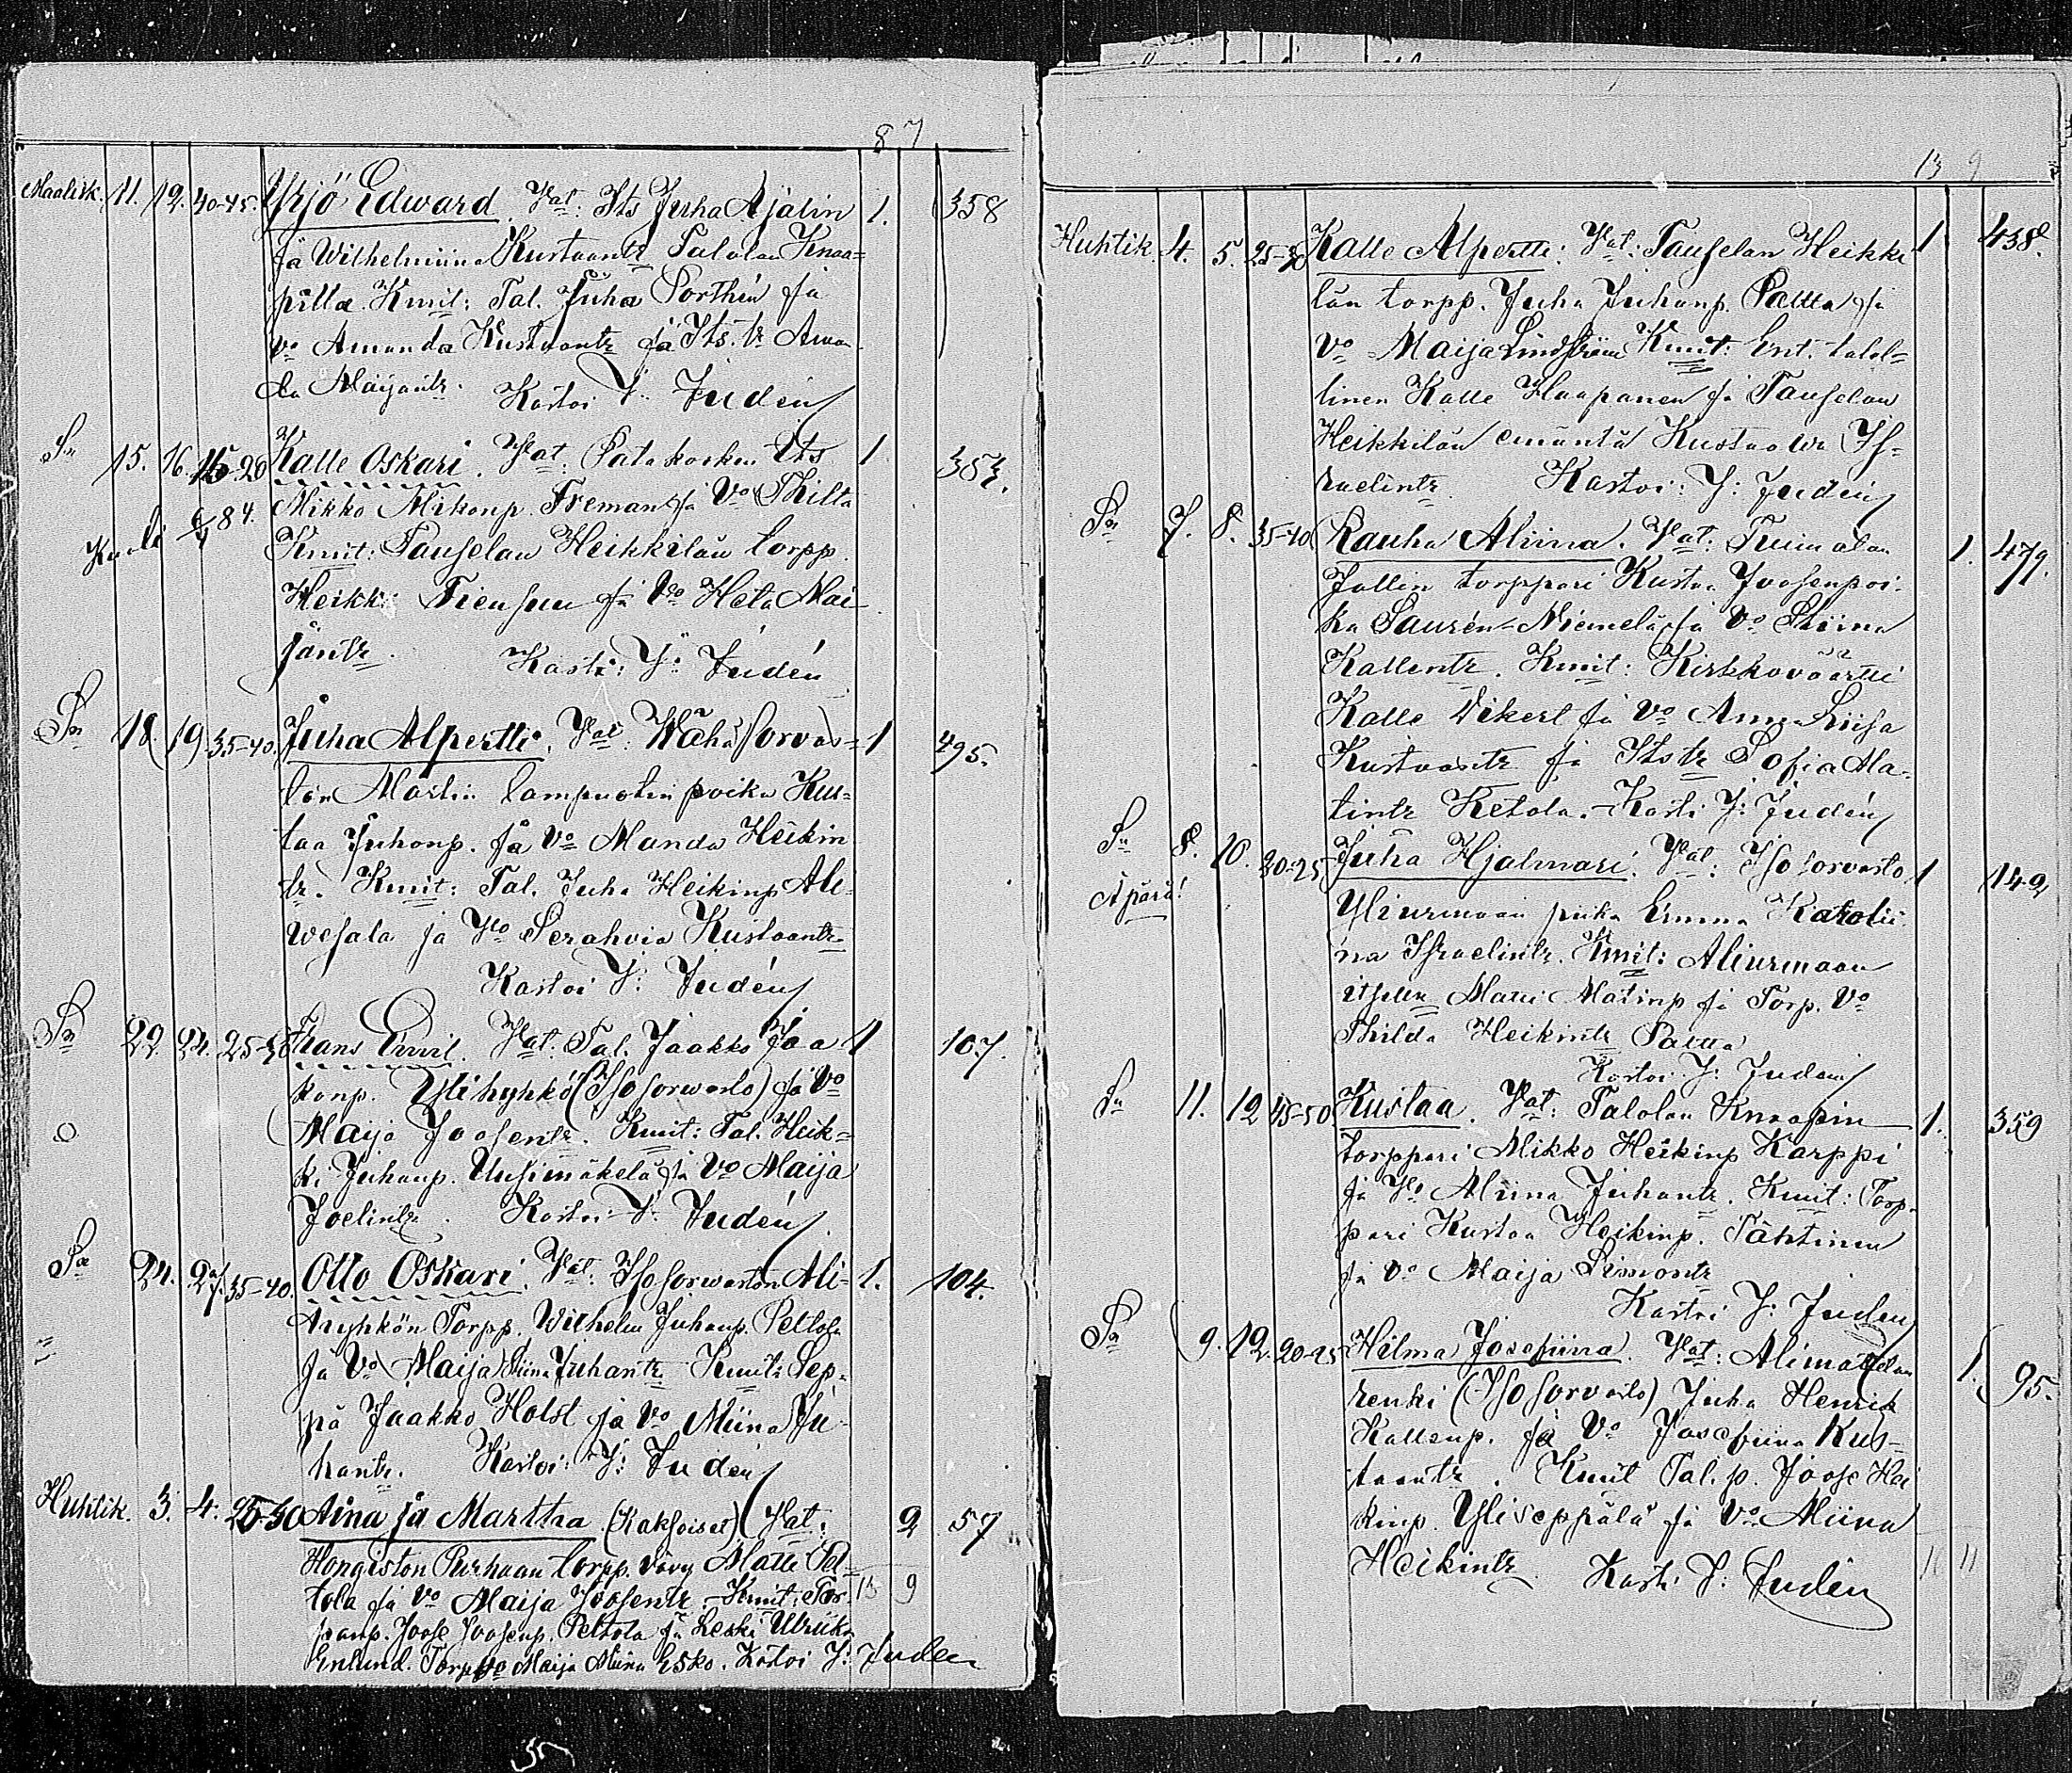 8 7
Maalisk. 11. 12. 40-45. Yrjö Edward. Vat: Its Juha Äjälin 1. 358
ja Wilhelmiina Kustaantr Talolan Knaa=
pilla. Kmit: Tal. Juha Porthén ja
vo Amanda Kustaantr ja Its. tr Aman
da Maijantr. Kastoi J. Judén
Sa 15. 16. 15-20 Kalle Oskari. Vat: Patakosken Its 1. 353.
Mikko Mikonp. Freman ja Vo Thilta
Kuoli 6/4 84. Kmit: Tauselan Heikkilän torpp.
Heikki ja Vo Heta Mai-
jantr. Kastoi: J: Judén
Sa 18. 19. 35-40. Juha Alpertti. Vat: Wähä Sorvas= 1 495.
ton Martin lampuotin poika Kus=
taa Juhonp. ja Vo Manda Heikin
tr. Kmit: Tal. Juha Heikinp Ali-
wesala ja Vo Serahvia Kustaantr
Kastoi J: Judén
Sa 22. 24. 25-30 Frans Emil. Vat: Tal. Jaakko Jaa 1 107.
konp. Ylihyhkö (Isosorwasto) ja Vo
Maija Joosentr. Kmit: Tal. Heik=
ki Juhanp. Uusimäkelä ja Vo Maija
Joelintr. Kastoi J. Judén
Sa 24. 27. 35-40. Otto Oskari. Vat: Isosorwaston Ali- 1. 104.
hyhkön Torpp. Wilhelm Juhanp. Peltola
ja Vo Maija Stiina Juhantr Kmit: Sep-
pä Jaakko Holst ja Vo Miina Ju-
hantr. Kastoi: J: Judén
Huhtik. 3. 4. 25-30 Aina ja Marttha (Kaksoiset) Vat: 2 57
Hongiston Purhaan torpp. vävy Matti Pel=
tola ja Vo Maija Joosentr. Kmit: Tor- 13 9
parp. Joose Joosenp. Peltola ja Leski Ulriika
Enlund. Torp Vo Maija Miina Esko. Kastoi J: Judén
13 9
Huhtik. 4. 5. 25-30 Kalle Alpertti: Vat: Tauselan Heikki 1 438.
län torpp. Juha Juhanp. Paltta ja
Vo Maija Lindström Kmit: Ent. talol=
linen Kalle Haapanen ja Tauselan
Heikkilän emäntä Kustaawa Is-
raelintr Kastoi: J: Judén
Sa 7. 8. 35-40 Rauha Aliina. Vat: Tuimalan 1. 479.
Jallin torppari Kustaa Joosenpoi-
ka Laurén-Niemelä ja Vo Stiina
Kallentr. Kmit: Kirkkoväärtti
Kalle Wikert ja Vo Anna Liisa
Kustaantr ja Itstr Sofia Ma-
tintr Ketola. Kasti J: Judén
Sa 8. 10. 20-25 Juha Hjalmari. Vat: Isosorvasto 1 149
Äpärä! Yliurmaan piika Emma Karolii
na Israelintr. Kmit: Aliurmaan
itsell. Matti Matinp ja Torp. Vo
Thilda Heikintr
Kastoi J: Judén
Sa 11. 12 45-50. Kustaa. Vat: Talolan Knaapin 1. 359
torppari Mikko Heikinp Karppi
ja Vo Miina Juhantr. Kmit: Torp-
pari Kustaa Heikinp. Tähtinen
ja Vo Maija Simontr
Kastoi J: Judén
Sa 9. 12. 20-25 Hilma Josefiina. Vat: Alimattelan 1. 95.
renki (Isosorvasto) Juha Henrik
Kallenp. ja Vo Josefiina Kus-
taantr. Kmit Tal. p. Joose Hei
kinp. Yliseppälä ja Vo Miina
Heikintr. Kasti J: Judén 11